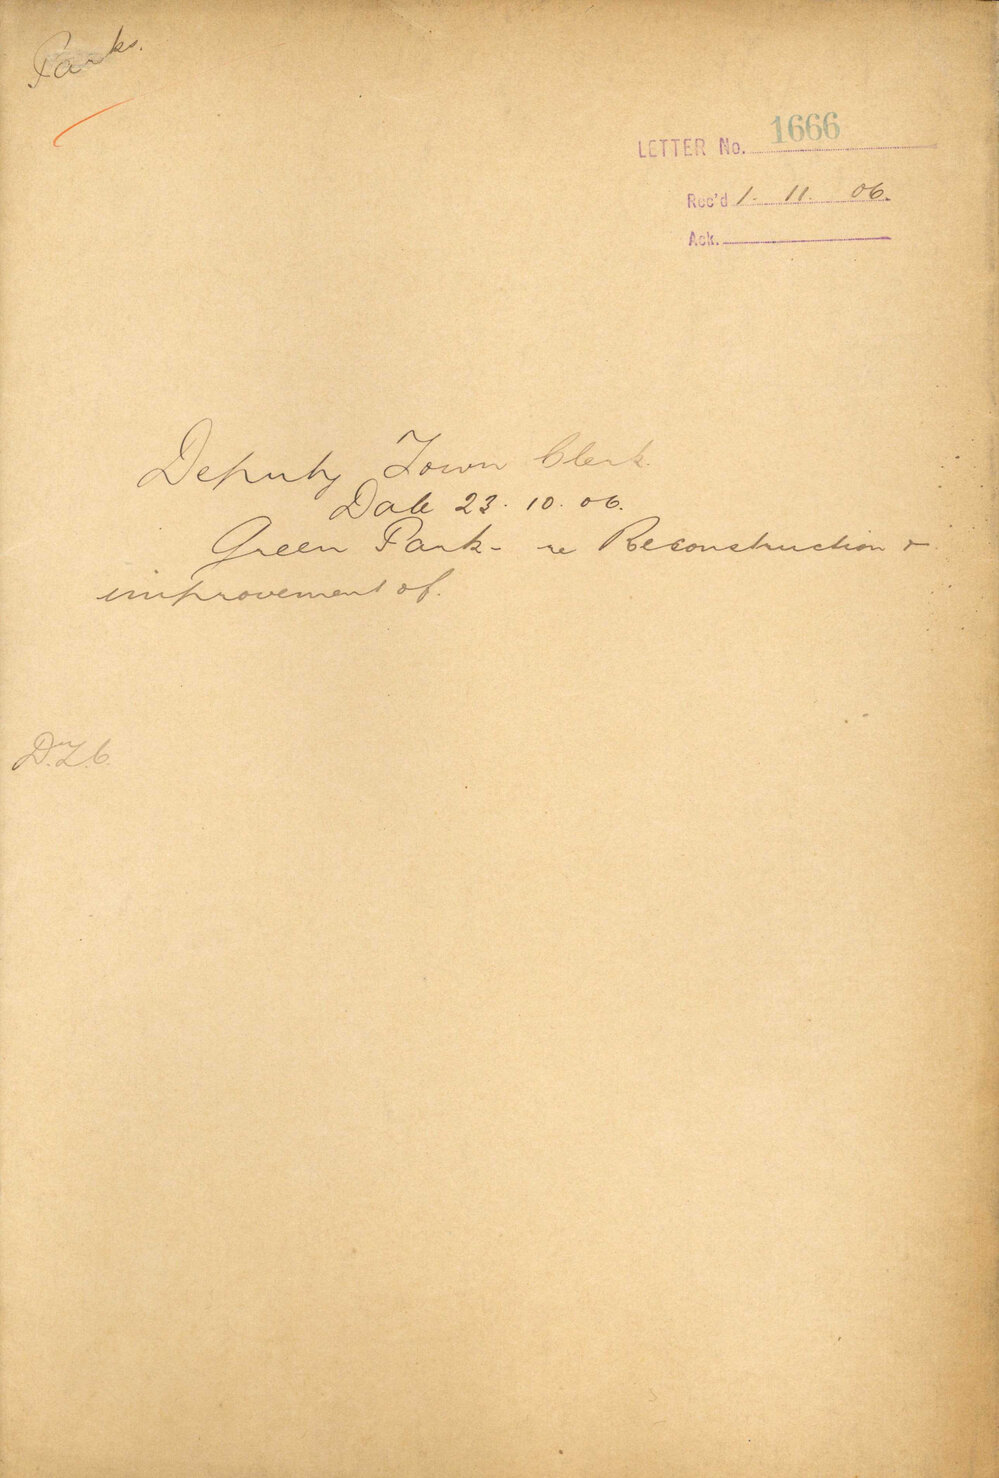 Parks.
LETTER No. 1666
Rec'd 1. 11. 06.
Ack.
Deputy Town Clerk.
Date 23. 10. 06.
Green Park - re Reconstruction &
improvement of.
D.T.C.